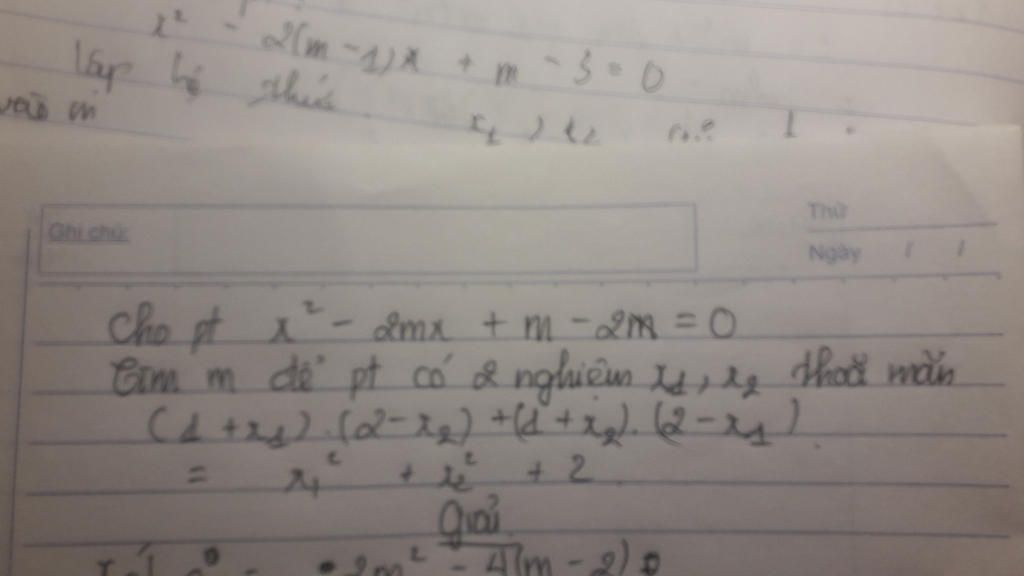 x² - 2(m - 1)x + m - 3 = 0
lập hệ thức x₁, x₂
vào m
Ghi chú:
Thứ
Ngày / /
Cho pt x² - 2mx + m - 2m = 0
Tìm m để pt có 2 nghiệm x₁, x₂ thoả mãn
(1 + x₁).(2 - x₂) + (1 + x₂).(2 - x₁)
= x₁² + x₂² + 2
Giải
2m² - 4(m - 2)